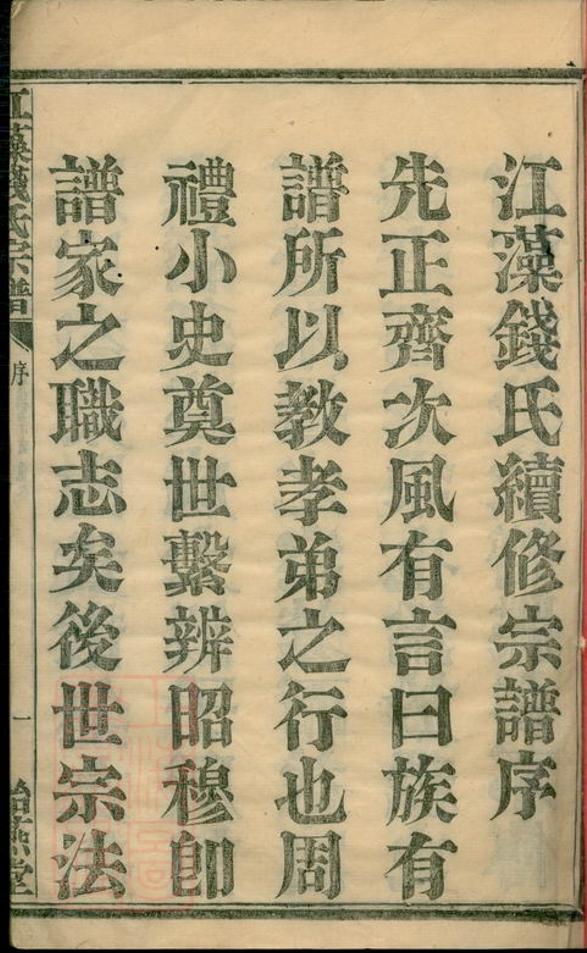 江藻錢氏續修宗譜序
先正齊次風有言曰族有
譜所以教孝弟之行也周
禮小史奠世繫辨昭穆卽
譜家之職志矣後世宗法
江藻錢氏宗譜
序
一
詒燕堂